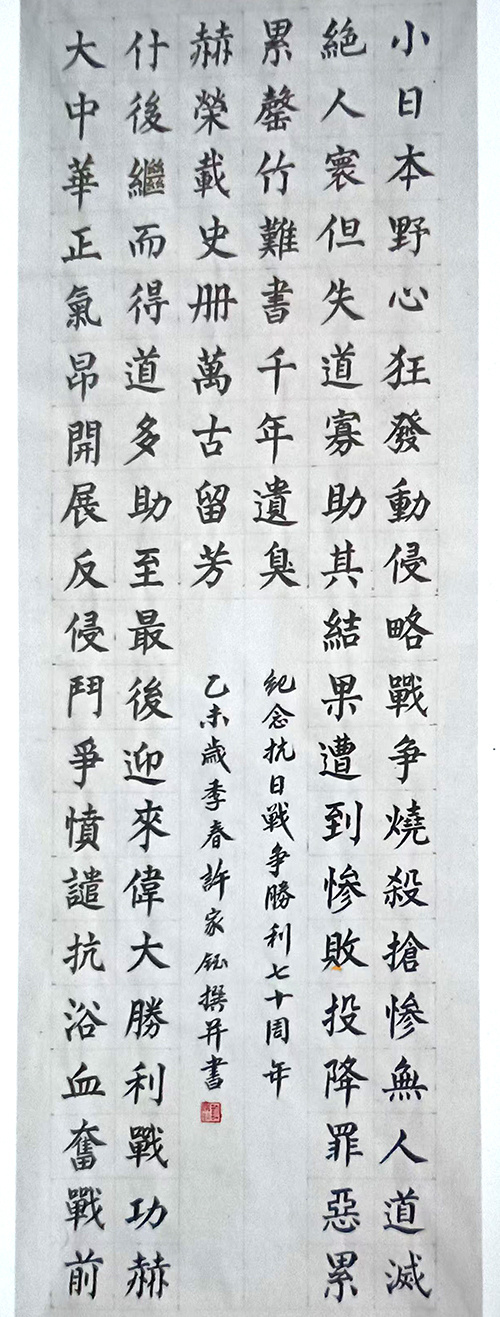 小日本野心狂發動侵略戰争燒殺搶惨無人道滅
絶人寰但失道寡助其結果遭到惨敗投降罪惡累
累罄竹難書千年遺臭
紀念抗日戰争勝利七十周年
大中華正氣昂開展反侵鬥爭憤譴抗浴血奮戰前
什後繼而得道多助至最後迎來偉大勝利戰功赫
赫榮載史册萬古留芳
乙未歲季春許家鈺撰并書